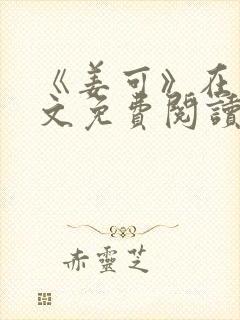 《姜可》在
文免費閱讀
赤靈芝